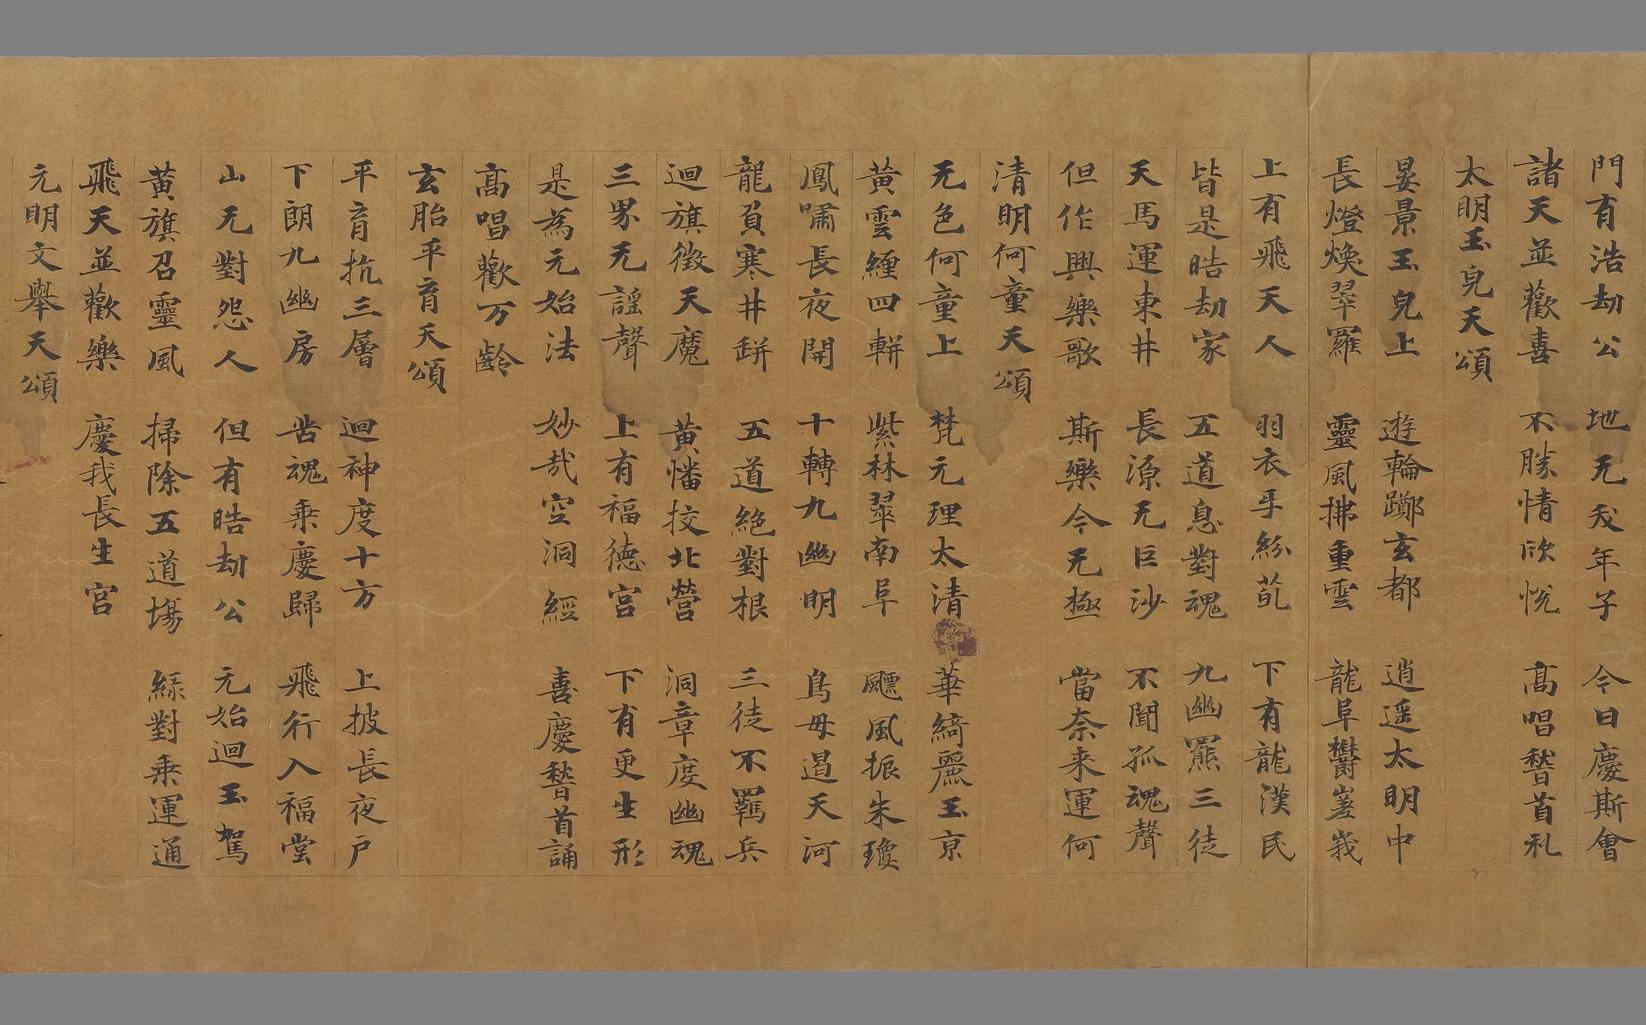 門有浩劫公 地无夭年子 今日慶斯會
諸天並歡喜 不勝情欣悅 高唱稽首礼
太明玉皃天頌
晏景玉皃上 遊輪躑玄都 逍遥太明中
長燈煥翠羅 靈風拂重雲 龍阜欝嵳峩
上有飛天人 羽衣手紛葩 下有龍漢民
皆是晧劫家 五道息對魂 九幽羆三徒
天馬運東井 長源无巨沙 不聞孤魂聲
但作興樂歌 斯樂今无極 當奈来運何
清明何童天頌
无色何童上 梵元理太清 華綺麗玉京
黃雲纏四軿 紫林翠南阜 飈風振朱瓊
鳳嘯長夜開 十轉九幽明 鳥母遏天河
龍負寒井缾 五道絶對根 三徒不羈兵
迴旗徵天魔 黃幡捡北營 洞章度幽魂
三界无謡聲 上有福德宮 下有更生形
是為元始法 妙哉空洞經 喜慶稽首誦
高唱歡万齡
玄胎平育天頌
平育抗三層 迴神度十方 上披長夜戸
下朗九幽房 苦魂乘慶歸 飛行入福堂
山无對怨人 但有晧劫公 元始迴玉駕
黃旗召靈風 掃除五道塲 緑對乘運通
飛天並歡樂 慶我長生宮
元明文舉天頌